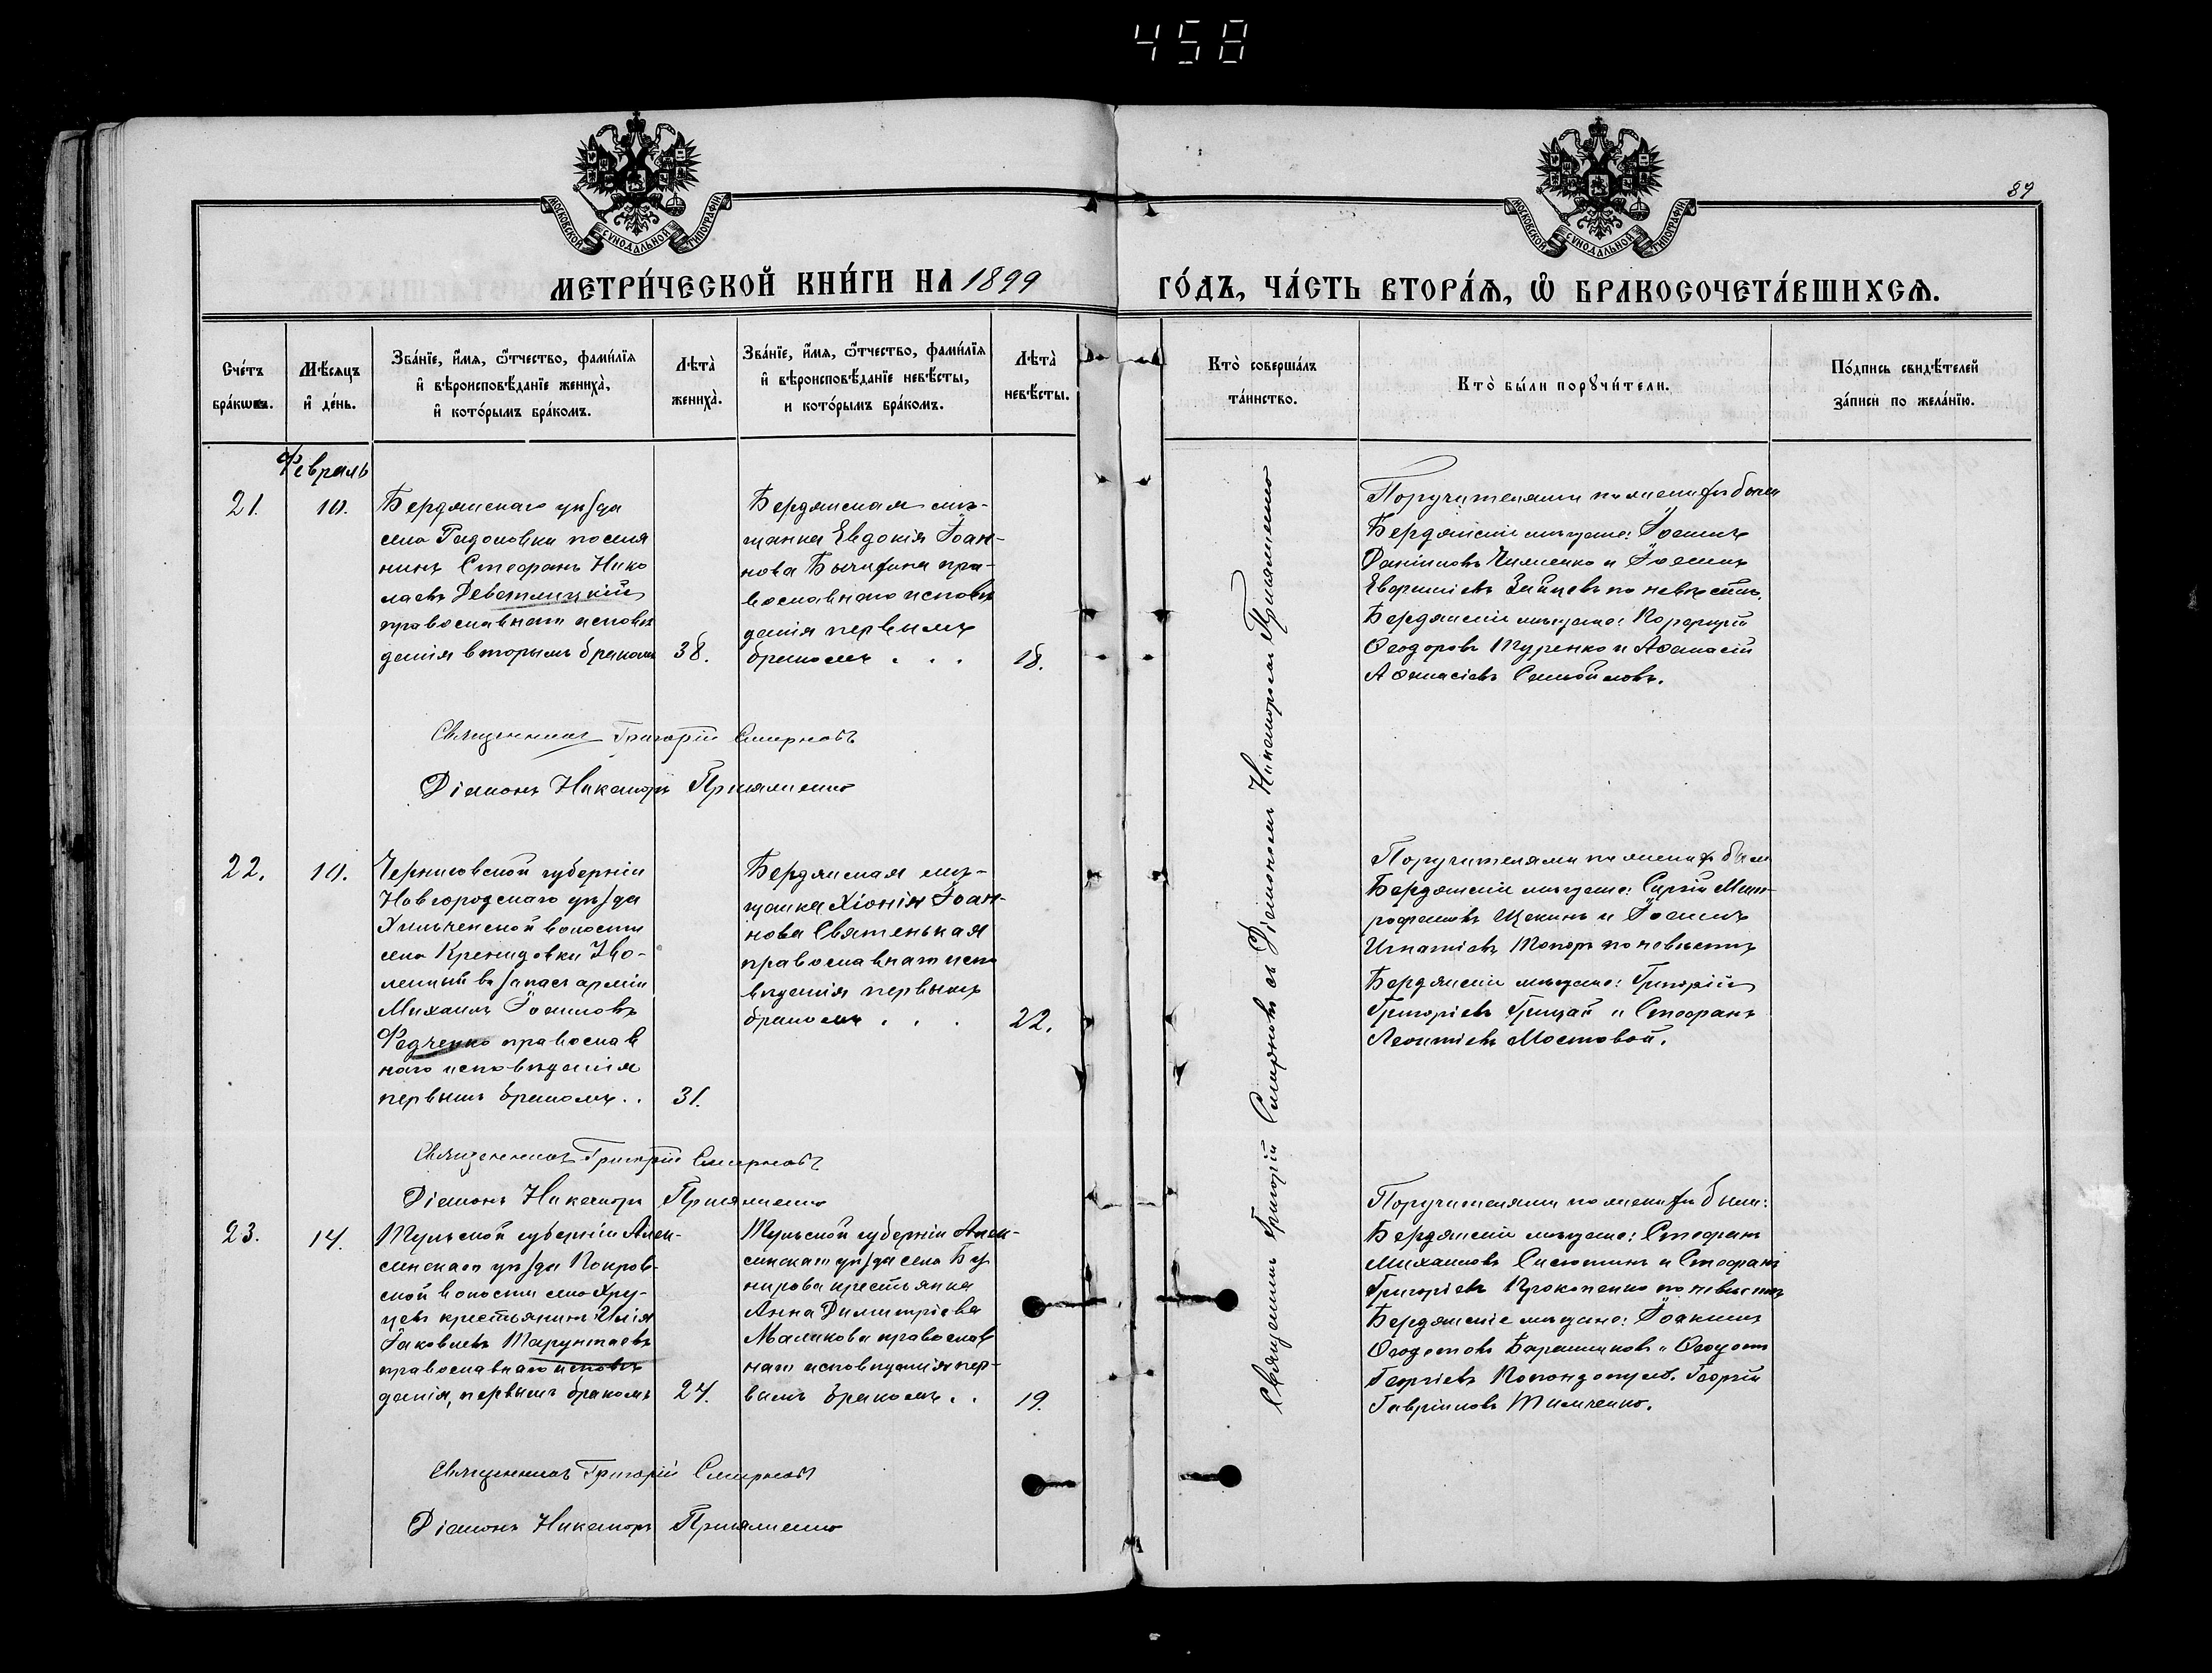 458
МОСКОВСКОЙ СѴНОДАЛЬНОЙ ТИПОГРАФІИ
МОСКОВСКОЙ СѴНОДАЛЬНОЙ ТИПОГРАФІИ
89
МЕТРИ́ЧЕСКОЙ КНИ́ГИ НА 1899
ГО́ДЪ, ЧА́СТЬ ВТОРА́Ѧ, Ѽ БРАКОСОЧЕТА́ВШИХСѦ.
Сче́тъ
бра́кѡвъ.
Мѣ́сѧцъ
и҆ де́нь.
Зва́нїе, и҆́мѧ, ѻ҆́тчество, фами́лїѧ
и҆ вѣроисповѣ́данїе жениха̀,
и҆ кото́рымъ бра́комъ.
Лѣта̀
жениха̀.
Зва́нїе, и҆́мѧ, ѻ҆́тчество, фами́лїѧ
и҆ вѣроисповѣ́данїе невѣ́сты,
и кото́рымъ бра́комъ.
Лѣта̀
невѣ́сты.
Кто̀ соверша́лъ
та́инство.
Кто̀ бы́ли порꙋчи́тели.
По́дпись свидѣ́телей
за́писи по жела́нїю.
Февраль
21.
10.
Бердянскаго уѣзда
села поселя
нинъ Стефанъ Нико
лаевъ
православнаго исповѣ
данія вторымъ бракомъ
38.
Бердянская мѣ-
щанка Евдокія Іоан-
нова пра-
вославнаго исповѣ
данія первымъ
бракомъ . . .
18.
Священникъ Григорій Смирновъ съ Діакономъ Никаноромъ
Поручителями по женихѣ были
Бердянскіе мѣщане: Іоаннъ
Даніиловъ и Іоаннъ
Зайцевъ по невѣстѣ.
Бердянскіе мѣщане: Порфирій
Ѳеодоровъ Туренко и Аѳанасій
Аѳанасіевъ Самойловъ.
Священникъ Григорій Смирновъ
Діаконъ Никаноръ
22.
10.
Черниговской губерніи
Новгородскаго уѣзда
волости
села Уво-
ленный въ запасъ арміи
Михаилъ
Федченко православ
наго исповѣданія
первымъ бракомъ . .
31.
Бердянская мѣ-
щанка Хіонія Іоан-
нова Святенькая
православнаго испо
вѣданія первымъ
бракомъ . . .
22.
Поручителями по женихѣ были
Бердянскіе мѣщане: Сергій Мит-
рофановъ Щекинъ и Іоаннъ
Игнатіевъ Топоръ по невѣстѣ
Бердянскіе мѣщане: Григорій
Григоріевъ Грицай и Стефанъ
Леонтіевъ Мостовой.
Священникъ Григорій Смирновъ
Діаконъ Никаноръ
23.
14.
Тульской губерніи Алек-
синскаго уѣзда Покров-
ской волости села Хру-
щевъ крестьянинъ Илія
Іаковлевъ Тарунтаевъ
православнаго исповѣ
данія, первымъ бракомъ
24.
Тульской губерніи Алек-
синскаго уѣзда села Бу
нирова крестьянка
Анна Димитріева
Маликова православ
наго исповѣданія пер-
вымъ бракомъ . .
19.
Поручителями по женихѣ были:
Бердянскіе мѣщане: Стефанъ
Михаиловъ Сисютинъ и Стефанъ
Григоріевъ Прокопенко по невѣстѣ
Бердянскіе мѣщане: Іоакимъ
Ѳеодотовъ Баранниковъ и Ѳеодотъ
Георгіевъ Георгій
Гавріиловъ Тимченко.
Священникъ Григорій Смирновъ
Діаконъ Никаноръ